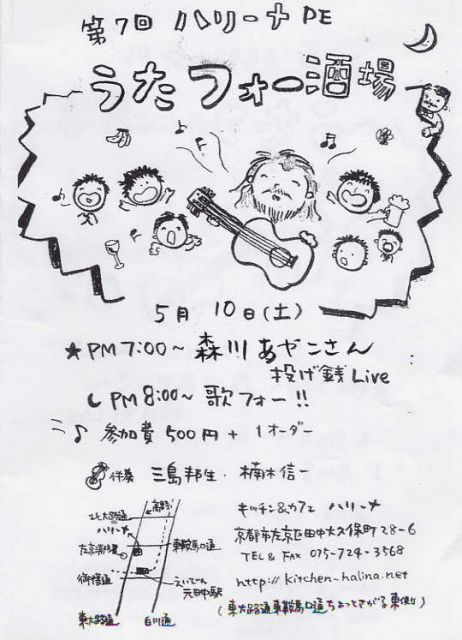 第7回 ハリーナ DE
うたフォー酒場
5月 10日(土)
★PM7:00~ 森川あやこさん
投げ銭Live
PM8:00~ 歌フォー!!
♪ 参加費 500円 + 1オーダー
伴奏 三島邦生・楠木信一
キッチン&カフェ ハリーナ
京都市左京区田中大久保町28-6
TEL & FAX 075-724-3568
http://kitchen-halina.net
(東大路通東鞍馬口通ちょっとさがる東側)
高野
北大路通
ハリーナ
東鞍馬口通
御蔭通
えいでん
元田中駅
東大路通
白川通